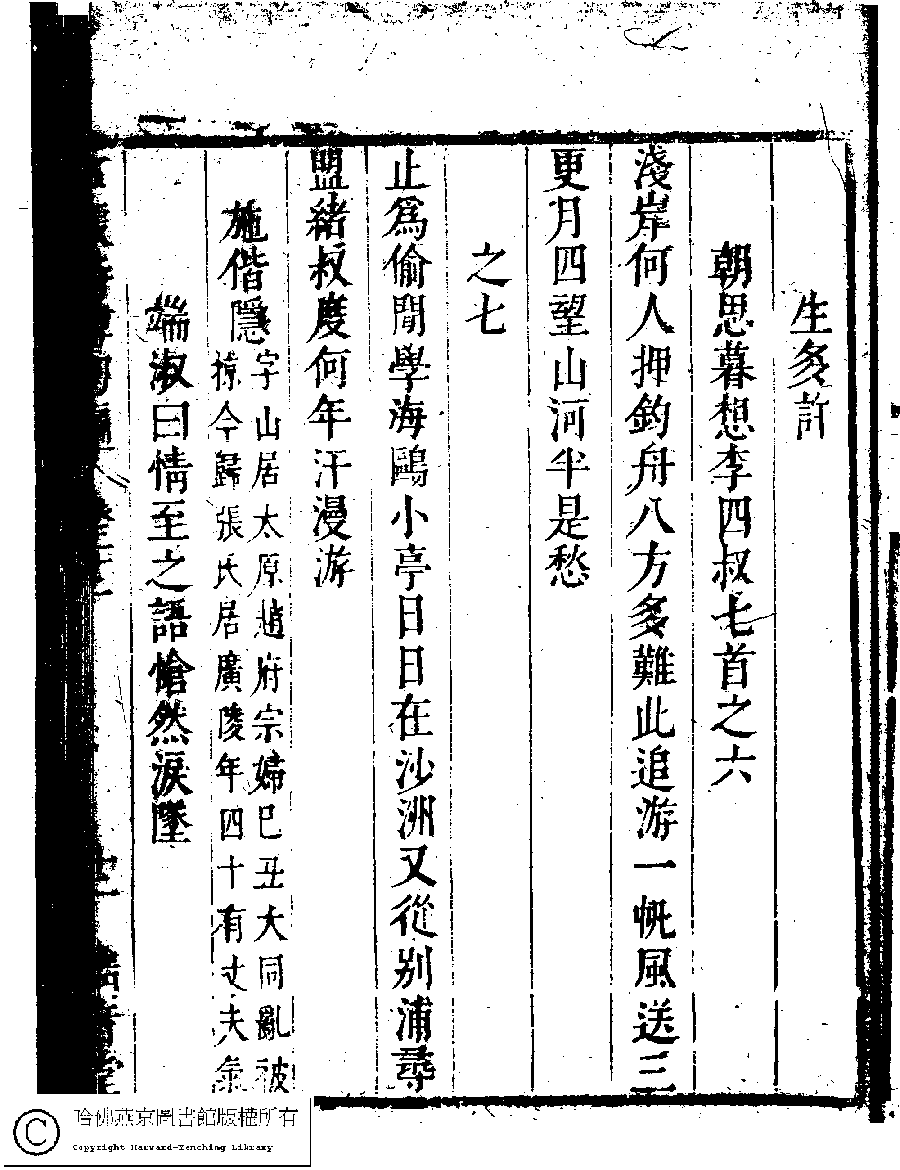 生多許
朝思暮想李四叔七首之六
淺岸何人押釣舟八方多難此追游一帆風送三
更月四望山河半是愁
之七
止爲偷閒學海鷗小亭日日在沙洲又從别浦尋
盟緒叔度何年汗漫游
施偕隱
字山居太原趙府宗婦巳丑大同亂被
掠今歸張氏居廣陵年四十有丈夫氣
端淑曰情至之語愴然淚墜
哈佛燕京圖書館版權所有
Copyright Harvard-Yenching Library